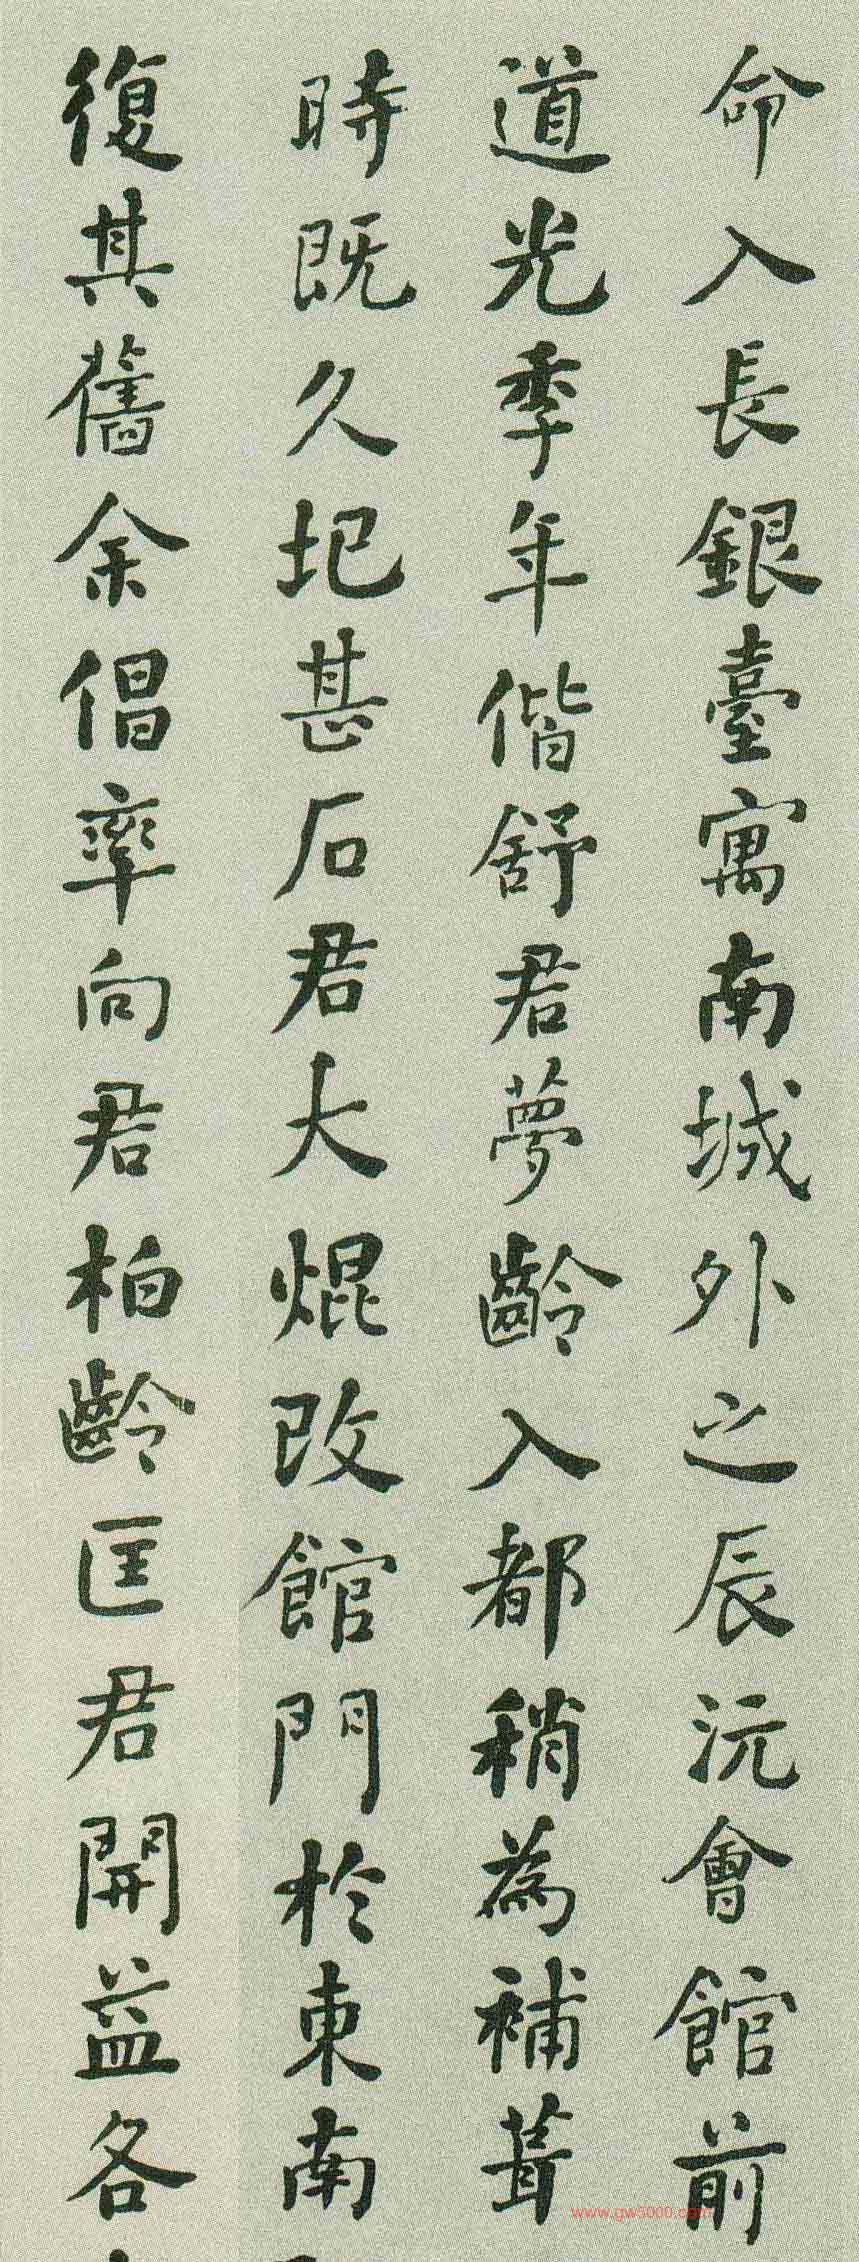 命入長銀臺寓南城外之辰沅會館前
道光季年偕舒君夢齡入都稍為補葺
時既久圯甚石君大焜改館門於東南
復其舊余倡率向君柏齡匡君開益各
www.gw5000.com